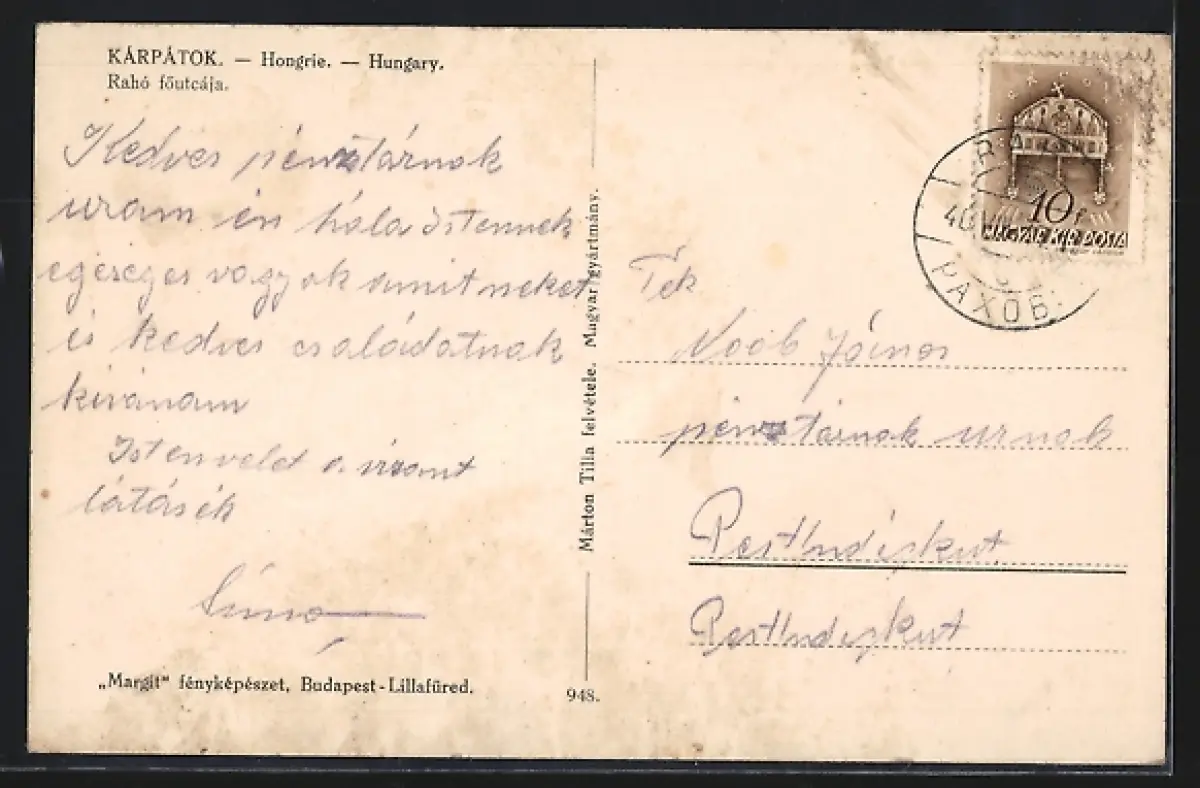 KÁRPÁTOK. — Hongrie. — Hungary.
Rahó főutcája.
Kedves pénztárnok
uram én hála Istennek
egéséges vagyok amit neket
és kedves családatnak
kívánam
Istenvelet a viszont
látásék
"Margit" fényképészet, Budapest-Lillafüred.
Márton Tilla felvétele. Magyar gyártmány.
948.
10 f
MAGYAR KIR. POSTA
40
РАХОВ
Tek
Noob János
pénztárnok urnak
Pesthidegkut
Pesthidegkut